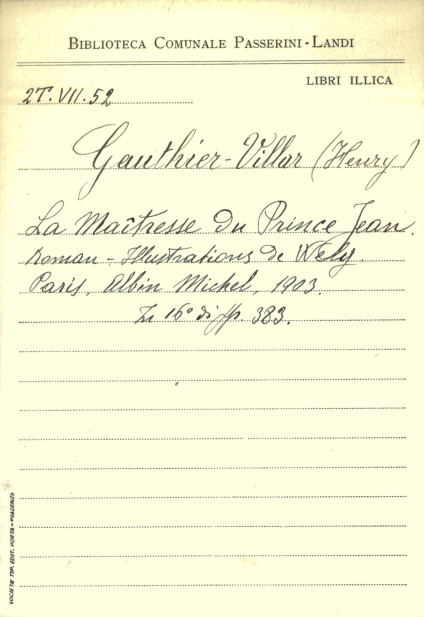 BIBLIOTECA COMUNALE PASSERINI-LANDI
LIBRI ILLICA
2T.VII.52
Gauthier-Villar (Henry)
La Maîtresse du Prince Jean.
Roman - Illustrations de Wély.
Paris, Albin Michel, 1903.
In 16° di pp. 383.
SOCIETÀ TIP. EDIT. PORTA - PIACENZA